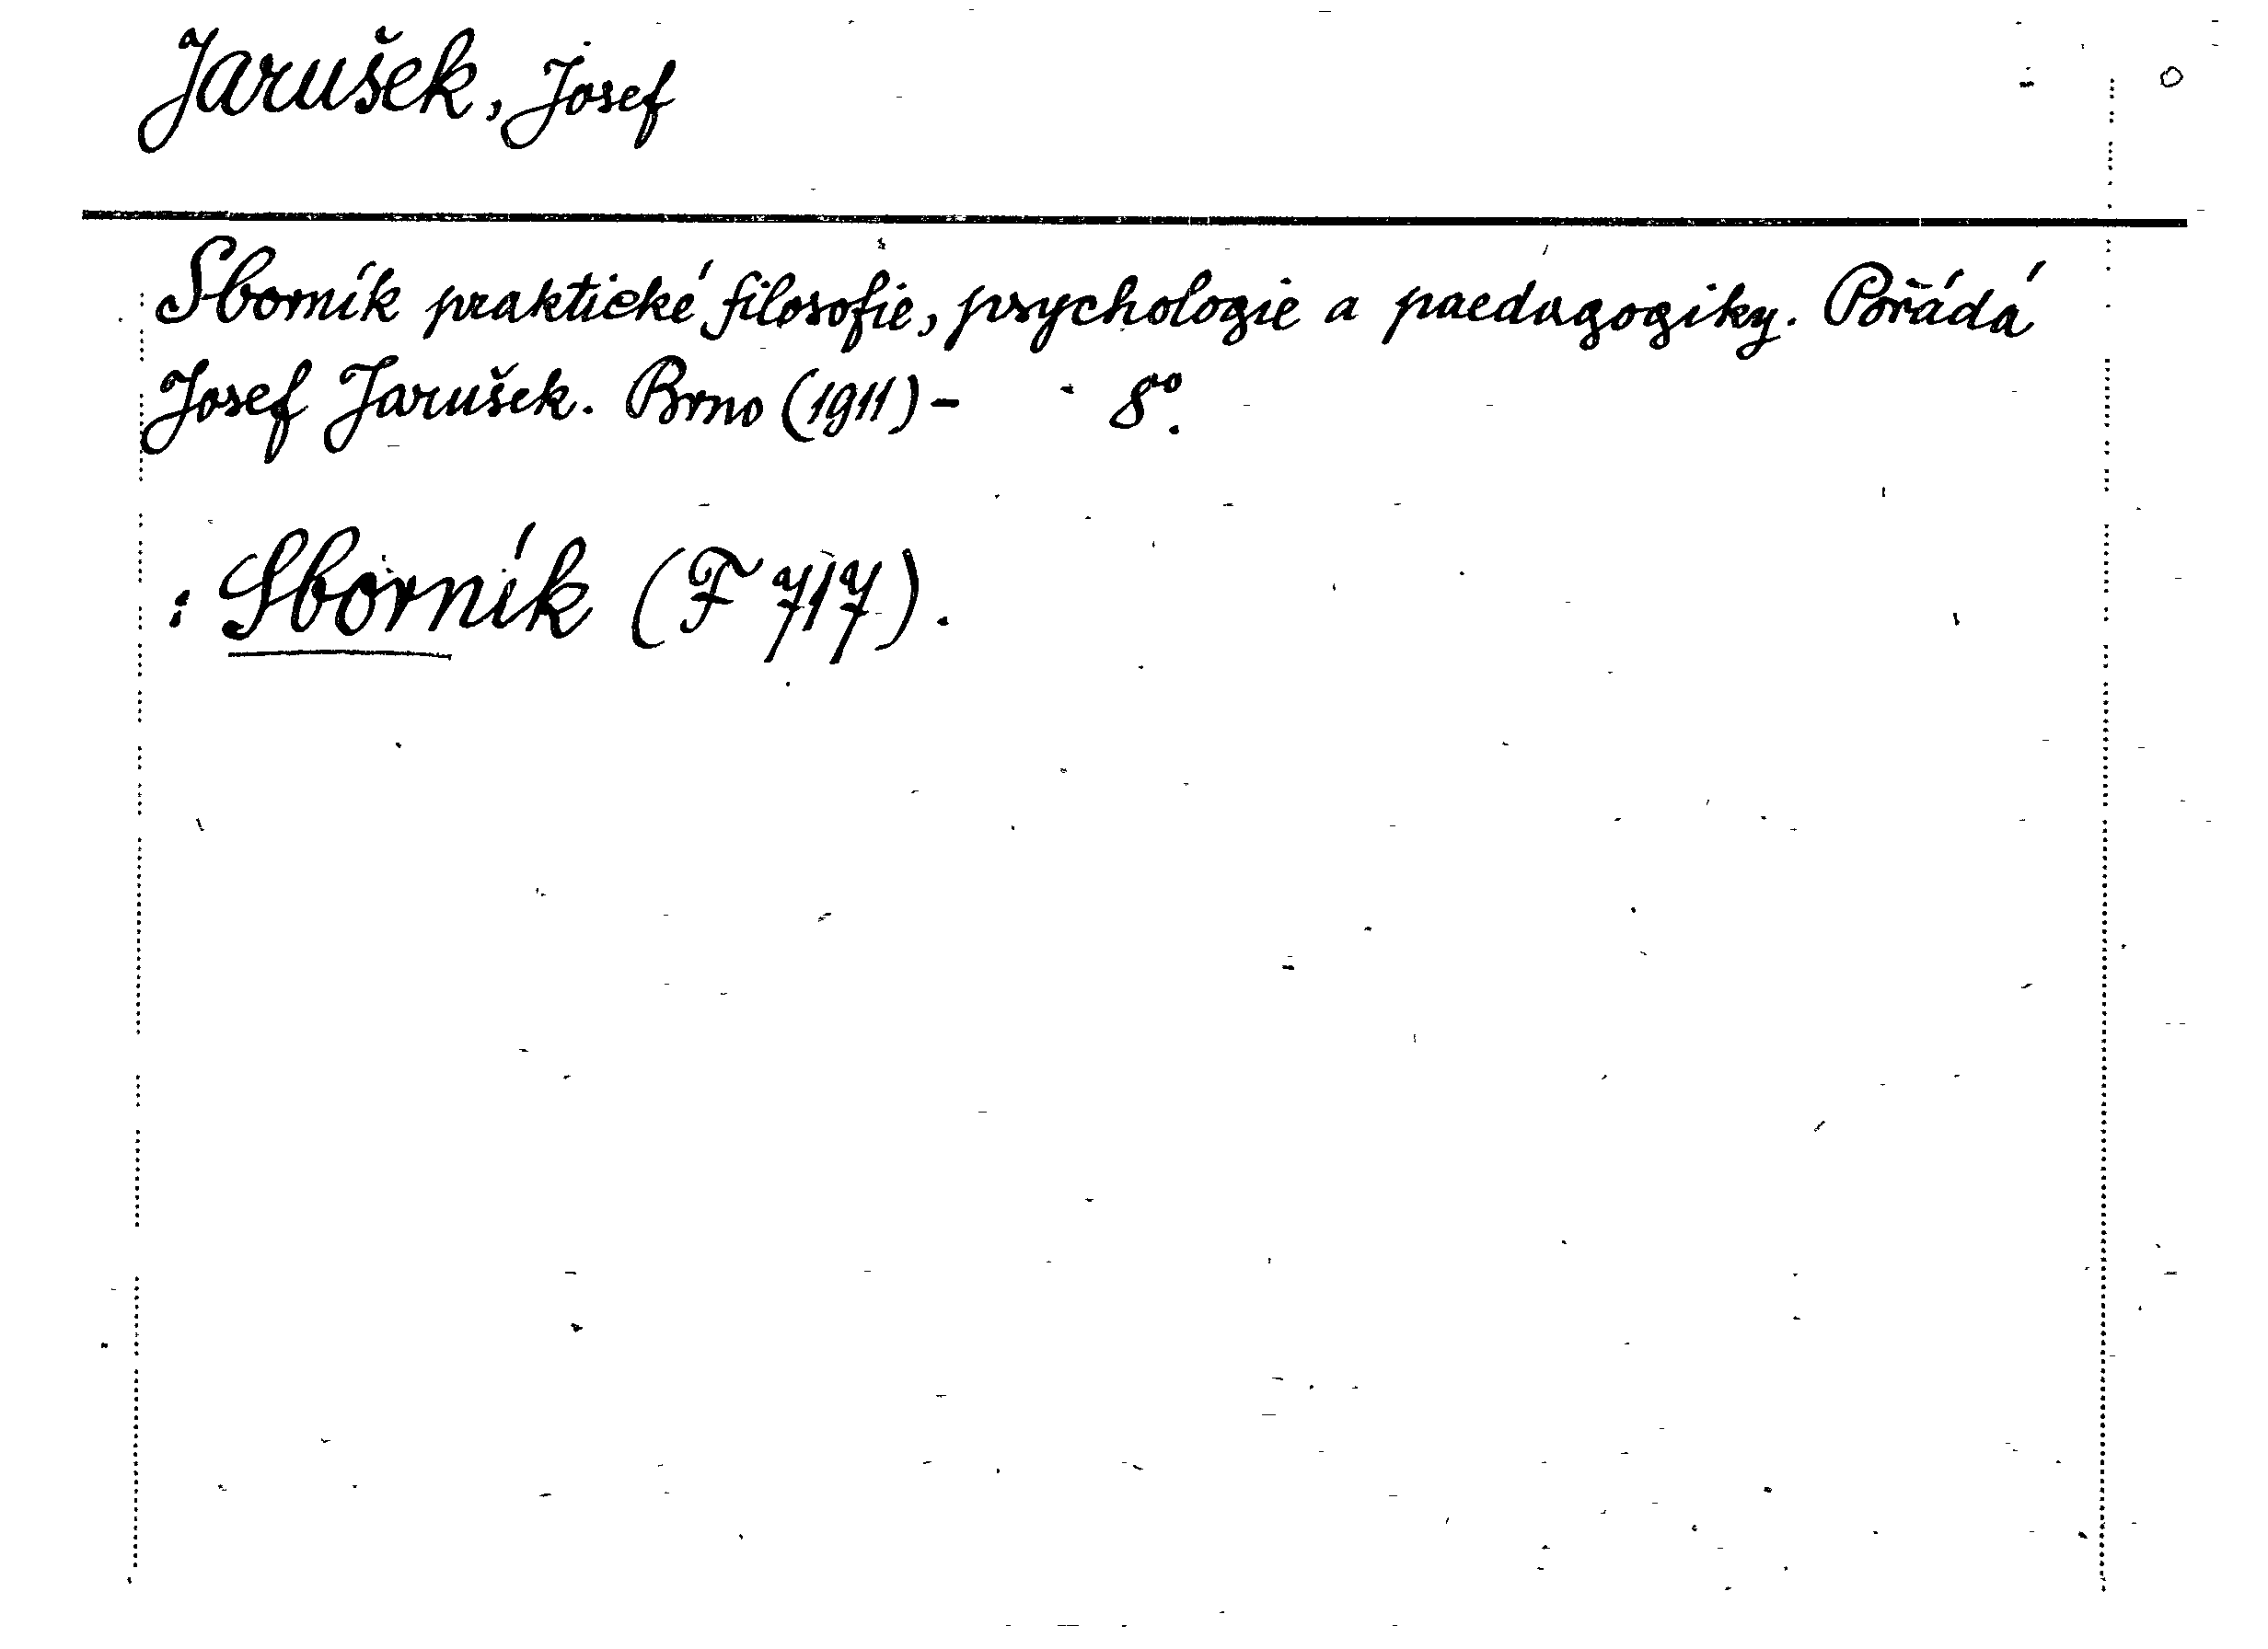 Jarušek, Josef
Sborník praktické filosofie, psychologie a paedagogiky. Pořádá
Josef Jarušek. Brno (1911) - 8°.
: Sborník (F 717).